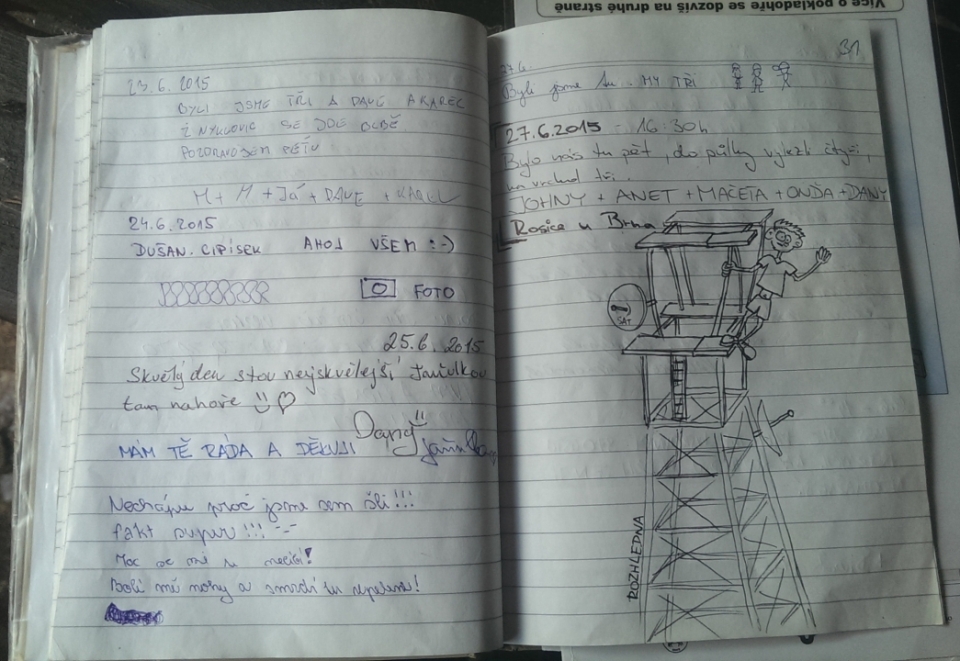 23.6.2015
BYLI JSME TŘI A DAVE A KAREL
Z NÝKLOVIC SE JDE
POZDRAVUJEM PÉŤU
M + M + Já + DAVE + KAREL
24.6.2015
DUŠAN. CIPÍSEK AHOJ VŠEM :-)
FOTO
25.6.2015
Skvělý den s tou nejskvělejší Janulkou
tam nahoře
MÁM TĚ RÁDA A DĚKUJI
Nechápu proč jsme sem šli!!!
fakt super!!!
Moc se mi tu nelíbí!
Bolí mě nohy a smrdí tu repelent!
Více o pokladohře se dozvíš na druhé straně
31
27.6.
Byli jsme tu MY TŘI
27.6.2015 - 16:30h
Bylo nás tu pět, do půlky vylezli čtyři,
na vrchol tři.
JOHNY + ANET + MAČETA + ONĎA + DANY
Rosice u Brna
SAT
ROZHLEDNA